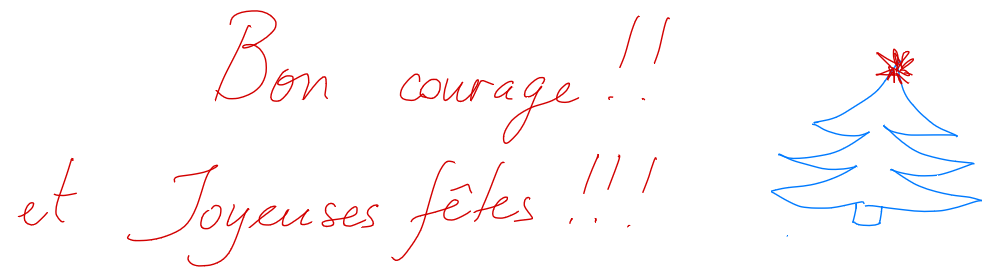 Bon courage !!
et Joyeuses fêtes !!!